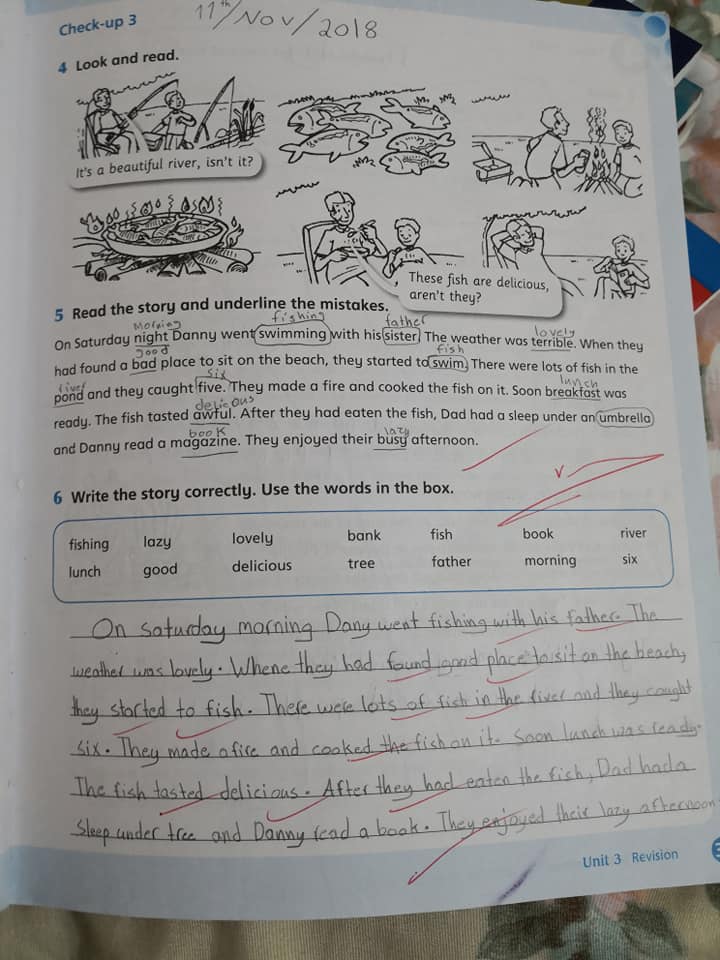 Check-up 3
11th/Nov/2018
4 Look and read.
It's a beautiful river, isn't it?
These fish are delicious,
aren't they?
5 Read the story and underline the mistakes.
Morning fishing father
On Saturday night Danny went swimming with his sister. The weather was terrible. When they
good fish lovely
had found a bad place to sit on the beach, they started to swim. There were lots of fish in the
river six lunch
pond and they caught five. They made a fire and cooked the fish on it. Soon breakfast was
delicious
ready. The fish tasted awful. After they had eaten the fish, Dad had a sleep under an umbrella
book lazy
and Danny read a magazine. They enjoyed their busy afternoon.
6 Write the story correctly. Use the words in the box.
fishing lazy lovely bank fish book river
lunch good delicious tree father morning six
On saturday morning Dany went fishing with his father. The
weather was lovely. Whene they had found good place to sit on the beach,
they started to fish. There were lots of fish in the river and they caught
six. They made a fire and cooked the fish on it. Soon lunch was ready.
The fish tasted delicious. After they had eaten the fish, Dad had a
sleep under tree and Danny read a book. They enjoyed their lazy afternoon
Unit 3 Revision